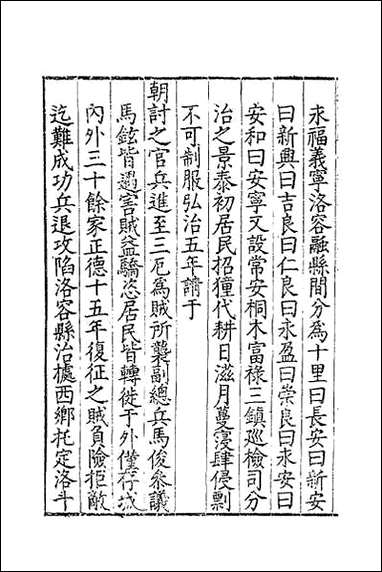 永福義寧洛容融縣間分為十里曰長安曰新安
曰新興曰吉良曰仁良曰永盈曰崇良曰永安曰
安和曰安寧又設常安桐木富祿三鎮巡檢司分
治之景泰初居民招獞代耕日滋月蔓寖肆侵剽
不可制服弘治五年請于
朝討之官兵進至三厄為賊所襲副總兵馬俊叅議
馬鉉皆遇害賊益驕恣居民皆轉徙于外僅存城
內外三十餘家正德十五年復征之賊負險拒敵
迄難成功兵退攻陷洛容縣治據西鄉托定洛斗